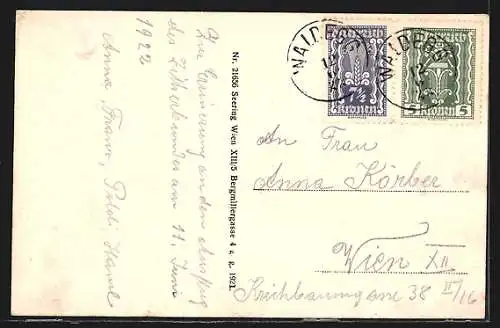 Zur Erinnerung an den Ausflug
des am 11. Juni
1922
Anna Franz Poldi Hansl
Nr. 21656 Seering Wien XIII/5 Bergmillergasse 4 a. g. 1921.
WALDEGG
7½
KRONEN
WALDEGG
5 KRONEN 5
An Frau
Anna Körber
Wien XII
38 II/16